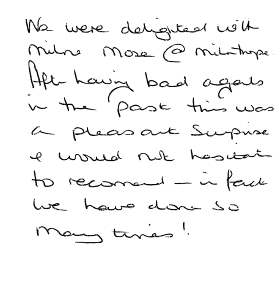 We were delighted with
Milne Moser @ Milnthorpe.
After having bad agents
in the past this was
a pleasant surprise
& would not hesitate
to recomend – in fact
we have done so
many times!